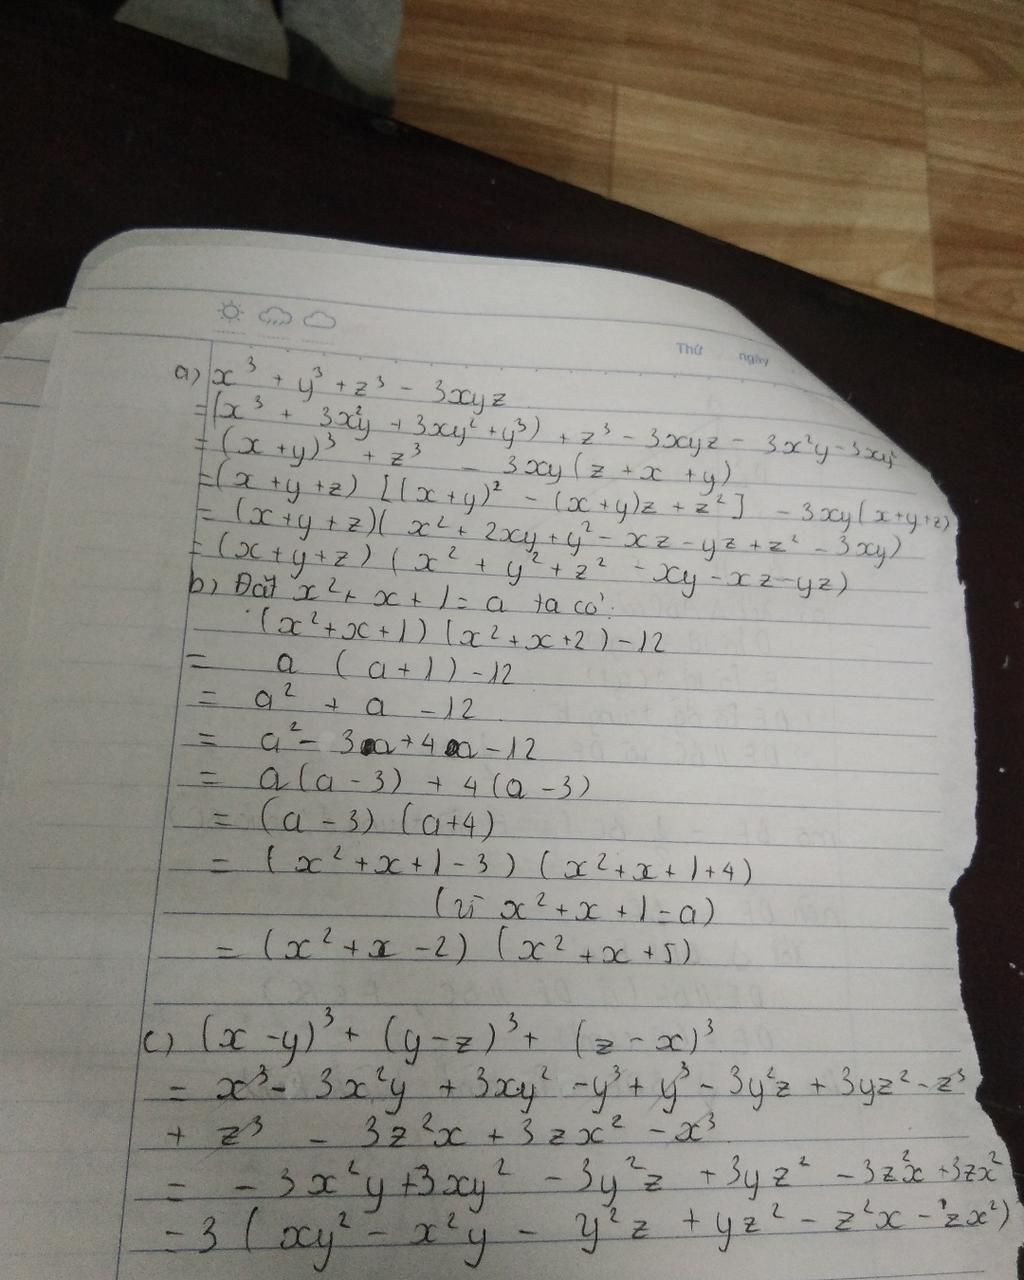 Thứ ngày
a) x³ + y³ + z³ - 3xyz
= (x³ + 3x²y + 3xy² + y³) + z³ - 3xyz - 3x²y - 3xy²
= (x + y)³ + z³ - 3xy (z + x + y)
= (x + y + z) [(x + y)² - (x + y)z + z²] - 3xy (x + y + z)
= (x + y + z) (x² + 2xy + y² - xz - yz + z² - 3xy)
= (x + y + z) (x² + y² + z² - xy - xz - yz)
b) Đặt x² + x + 1 = a ta có:
(x² + x + 1) (x² + x + 2) - 12
= a (a + 1) - 12
= a² + a - 12
= a² - 3a + 4a - 12
= a (a - 3) + 4 (a - 3)
= (a - 3) (a + 4)
= (x² + x + 1 - 3) (x² + x + 1 + 4)
(vì x² + x + 1 = a)
= (x² + x - 2) (x² + x + 5)
c) (x - y)³ + (y - z)³ + (z - x)³
= x³ - 3x²y + 3xy² - y³ + y³ - 3y²z + 3yz² - z³
+ z³ - 3z²x + 3zx² - x³
= - 3x²y + 3xy² - 3y²z + 3yz² - 3z²x + 3zx²
= 3 (xy² - x²y - y²z + yz² - z²x - zx²)